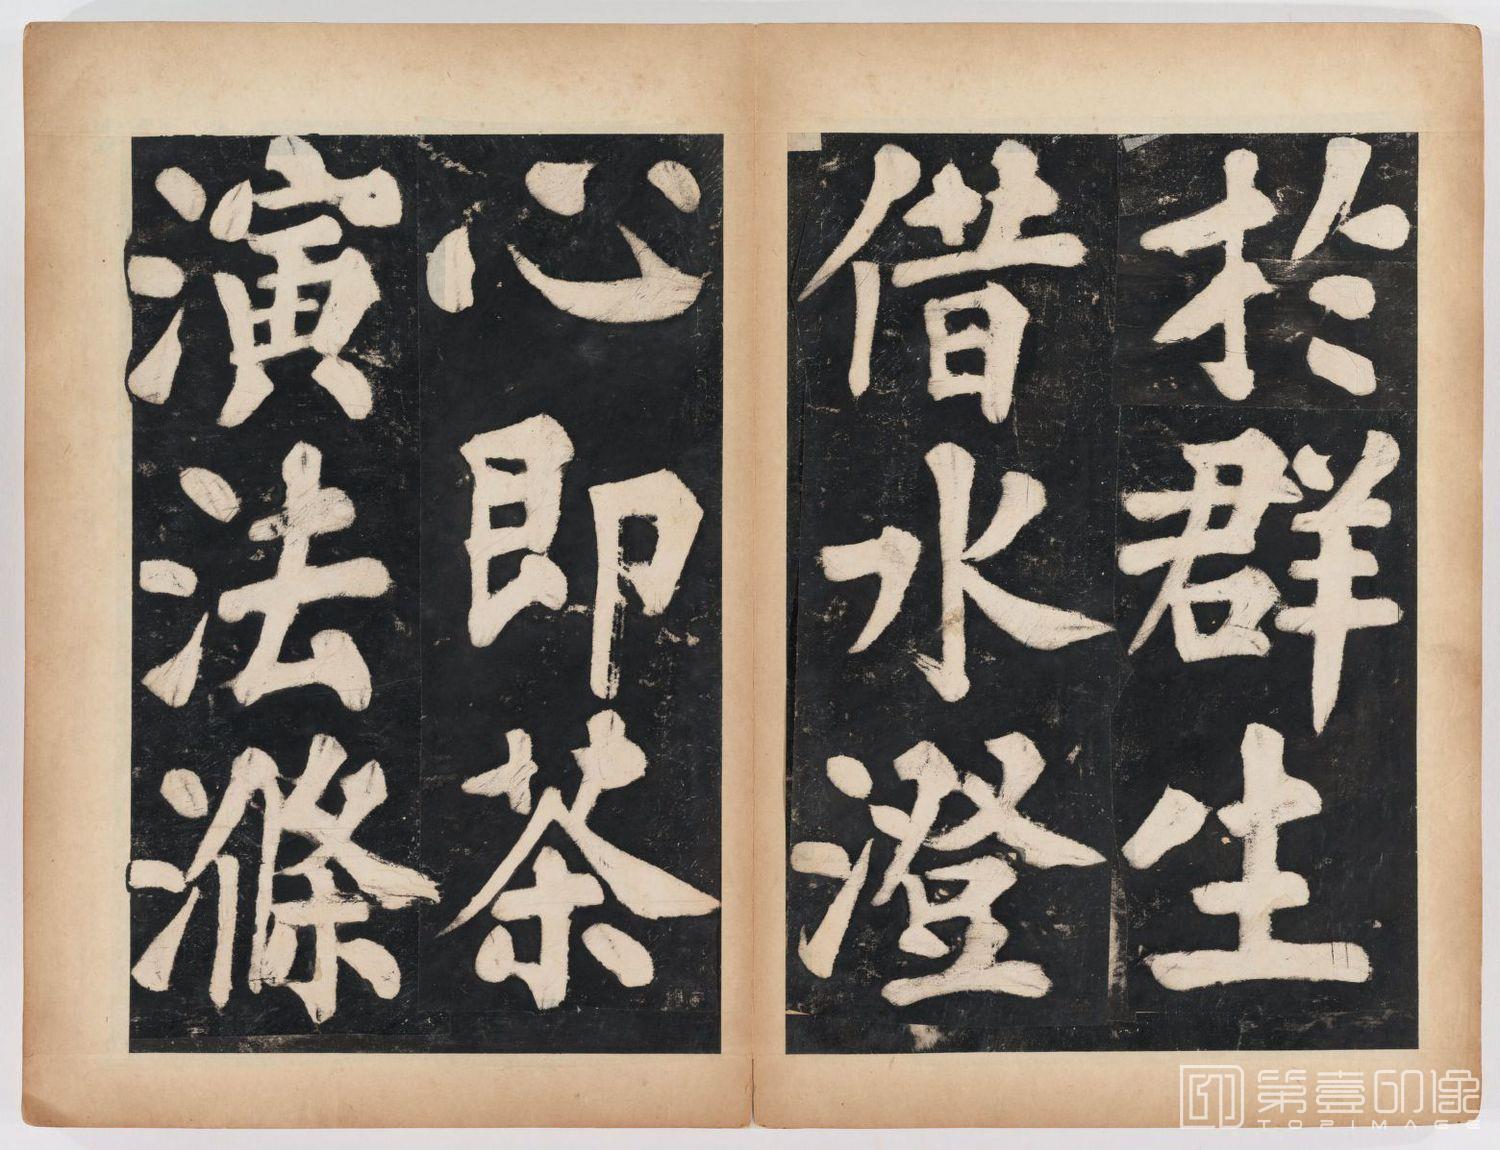 於群生
借水澄
心即茶
演法滌
第壹印像
TOPIMAGE